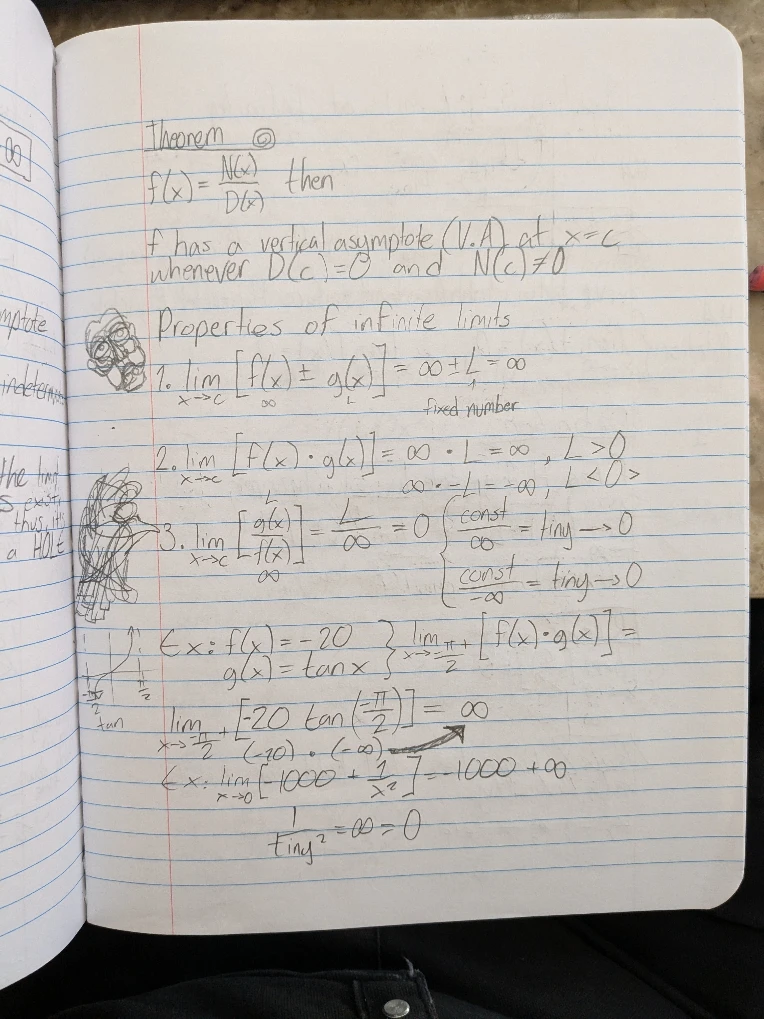 ∞
mptote
indeterm
the limit
s exist,
thus, it's
a HOLE
Theorem
f(x) = N(x)/D(x) then
f has a vertical asymptote (V.A) at x=c
whenever D(c)=0 and N(c)≠0
Properties of infinite limits
1. lim x→c [f(x) ± g(x)] = ∞ ± L = ∞
∞ L
fixed number
2. lim x→c [f(x) · g(x)] = ∞ · L = ∞, L>0
∞ · -L = -∞, L<0>
L
3. lim x→c [g(x)/f(x)] = L/∞ = 0 { const/∞ = tiny → 0
∞
const/-∞ = tiny → 0
Ex: f(x) = -20 } lim x→-π/2+ [f(x)·g(x)] =
g(x) = tanx
-π/2 π/2
tan
lim x→-π/2+ [-20 tan(-π/2)] = ∞
(-20) · (-∞)
Ex: lim x→0 [-1000 + 1/x²] = -1000 + ∞
1/tiny² = ∞ = 0